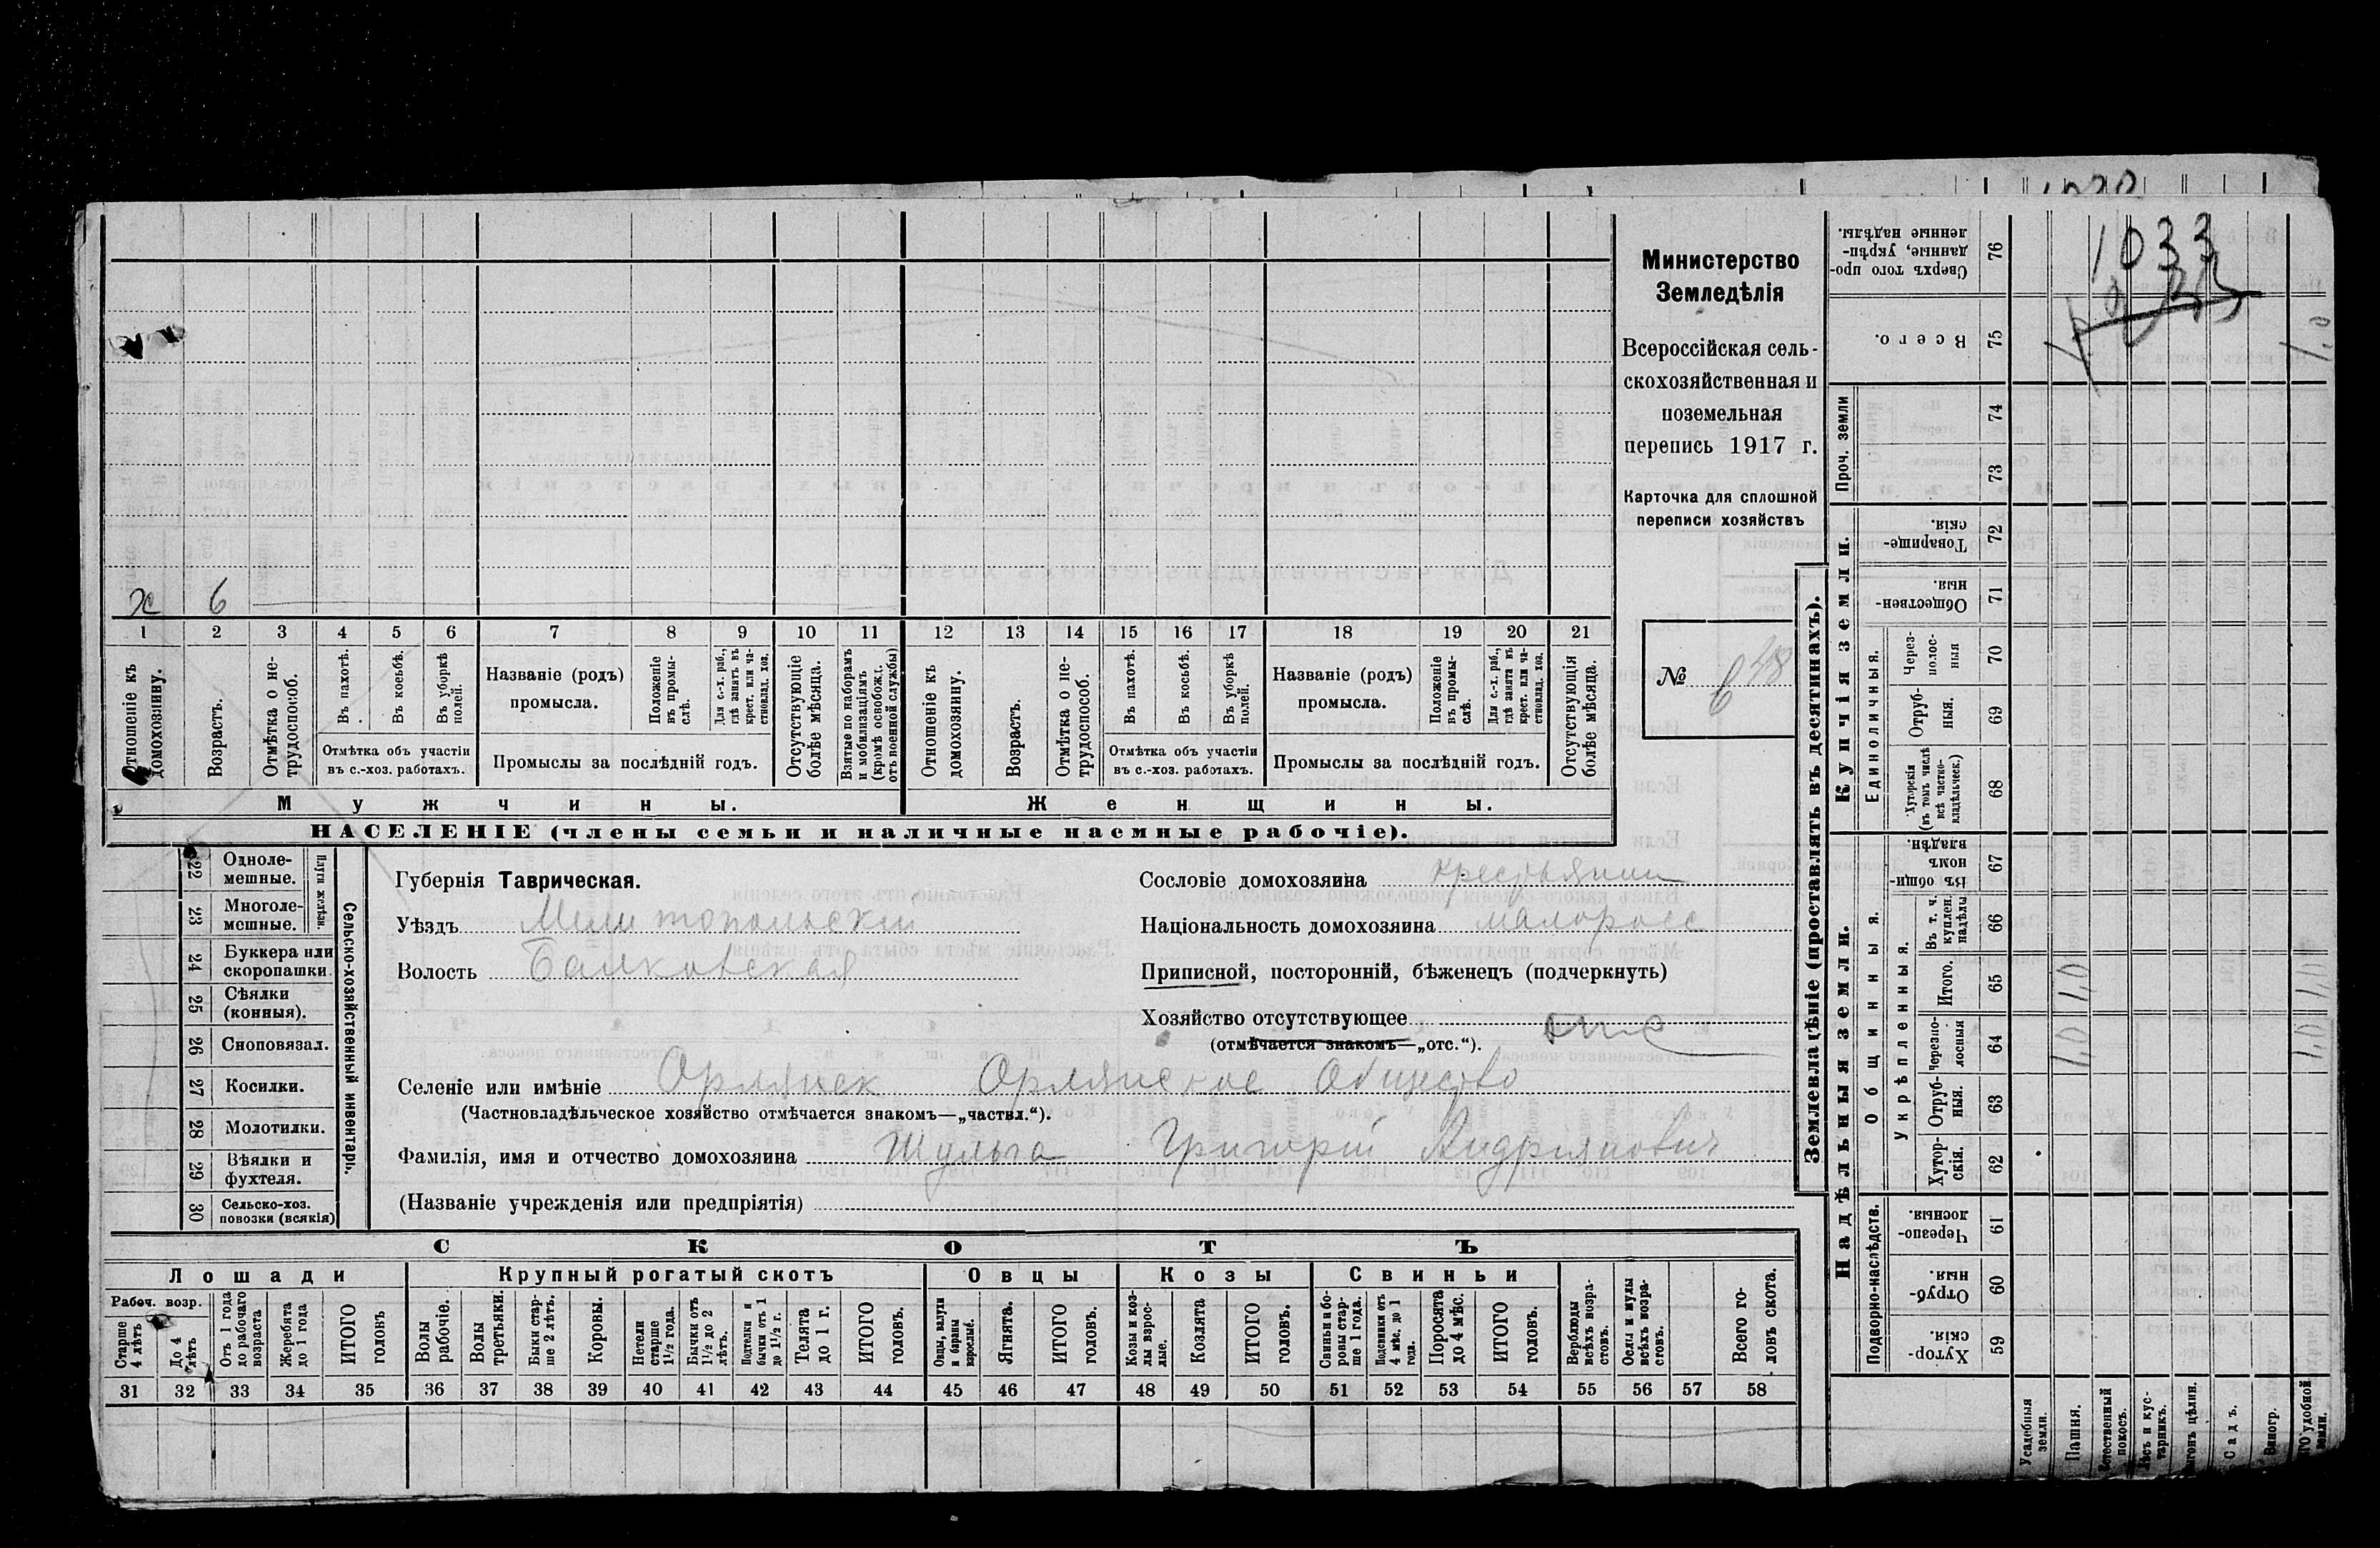 1033
Министерство
Земледѣлія
Всероссійская сель-
скохозяйственная и
поземельная
перепись 1917 г.
Карточка для сплошной
переписи хозяйствъ
№ 648
х 6
1 2 3 4 5 6 7 8 9 10 11 12 13 14 15 16 17 18 19 20 21
Отношеніе къ домохозяину.
Возрастъ.
Отмѣтка о не-трудоспособ.
Въ пахотѣ.
Въ косьбѣ.
Въ уборкѣ полей.
Отмѣтка объ участіи
въ с.-хоз. работахъ.
Названіе (родъ)
промысла.
Положеніе въ промы-слѣ.
Для с.-х. раб., гдѣ занятъ въ крест. или ча-стновлад. хоз.
Промыслы за послѣдній годъ.
Отсутствующіе болѣе мѣсяца.
Взятые по наборамъ и мобилизаціямъ (кромѣ освобожд. отъ военной службы)
Отношеніе къ домохозяину.
Возрастъ.
Отмѣтка о не-трудоспособ.
Въ пахотѣ.
Въ косьбѣ.
Въ уборкѣ полей.
Отмѣтка объ участіи
въ с.-хоз. работахъ.
Названіе (родъ)
промысла.
Положеніе въ промы-слѣ.
Для с.-х. раб., гдѣ занята въ крест. или ча-стновлад. хоз.
Промыслы за послѣдній годъ.
Отсутствующія болѣе мѣсяца.
Мужчины.
Женщины.
НАСЕЛЕНІЕ (члены семьи и наличные наемные рабочіе).
22 Одноле-мешные.
23 Многоле-мешные.
Плуги желѣзн.
24 Буккера или скоропашки.
25 Сѣялки (конныя).
26 Сноповязал.
27 Косилки.
28 Молотилки.
29 Вѣялки и фухтеля.
30 Сельско-хоз. повозки (всякія)
Сельско-хозяйственный инвентарь.
Губернія Таврическая.
Уѣздъ Мелитопольскій
Волость Балковская
Сословіе домохозяина крестьянин
Національность домохозяина малоросс
Приписной, посторонній, бѣженецъ (подчеркнуть)
Хозяйство отсутствующее отс
(отмѣчается знакомъ—„отс.“).
Селеніе или имѣніе Орлянск Орлянское Общество
(Частновладѣльческое хозяйство отмѣчается знакомъ—„частвл.“).
Фамилія, имя и отчество домохозяина Шульга Григорій Андріянович
(Названіе учрежденія или предпріятія)
СКОТЪ
Лошади
Крупный рогатый скотъ
Овцы
Козы
Свиньи
Рабоч. возр.
Старше 4 лѣтъ
До 4 лѣтъ
Отъ 1 года до рабочаго возраста
Жеребята до 1 года
ИТОГО головъ
Волы рабочіе.
Волы третьяки.
Быки стар-ше 2 лѣтъ.
Коровы.
Нетели старше 1½ года.
Бычки отъ 1½ до 2 лѣтъ.
Подтелки и бычки отъ 1 до 1½ г.
Телята до 1 г.
ИТОГО головъ.
Овцы, валухи и бараны взрослые.
Ягнята.
ИТОГО головъ.
Козы и коз-лы взрос-лые.
Козлята
ИТОГО головъ.
Свиньи и бо-ровы стар-ше 1 года.
Подсвинки отъ 4 мѣс. до 1 года.
Поросята до 4 мѣс.
ИТОГО головъ.
Верблюды всѣхъ возра-стовъ.
Ослы и мулы всѣхъ возра-стовъ.
Всего го-ловъ скота.
31 32 33 34 35 36 37 38 39 40 41 42 43 44 45 46 47 48 49 50 51 52 53 54 55 56 57 58
Землевладѣніе (проставлять въ десятинахъ).
Надѣльныя земли.
Купчія земли.
Проч. земли
Сверхъ того про-данные, укрѣп-ленные надѣлы. 76
Всего. 75 1,0
74
73
Товарище-скія. 72
Обществен-ныя. 71
Единоличныя.
Через-полос-ныя 70
Отруб-ныя. 69
Хуторскія (въ томъ числѣ всѣ частно-владѣльческ.) 68
Общинныя.
Въ общин-номъ владѣн. 67
Укрѣпленныя.
Въ т. ч. куплен. надѣлы 66
Итого. 65 1,0 1,0
Черезпо-лосныя 64 1,0 1,0
Отруб-ныя. 63
Хутор-скія. 62
Подворно-наслѣдств.
Черезпо-лосныя. 61
Отруб-ныя. 60
Хутор-скія. 59
Усадебныя земли.
Пашня.
Естественный покосъ.
Лѣсъ и кус-тарникъ.
Выгонъ цѣлин.
Садъ.
Виногр.
удобной земли.